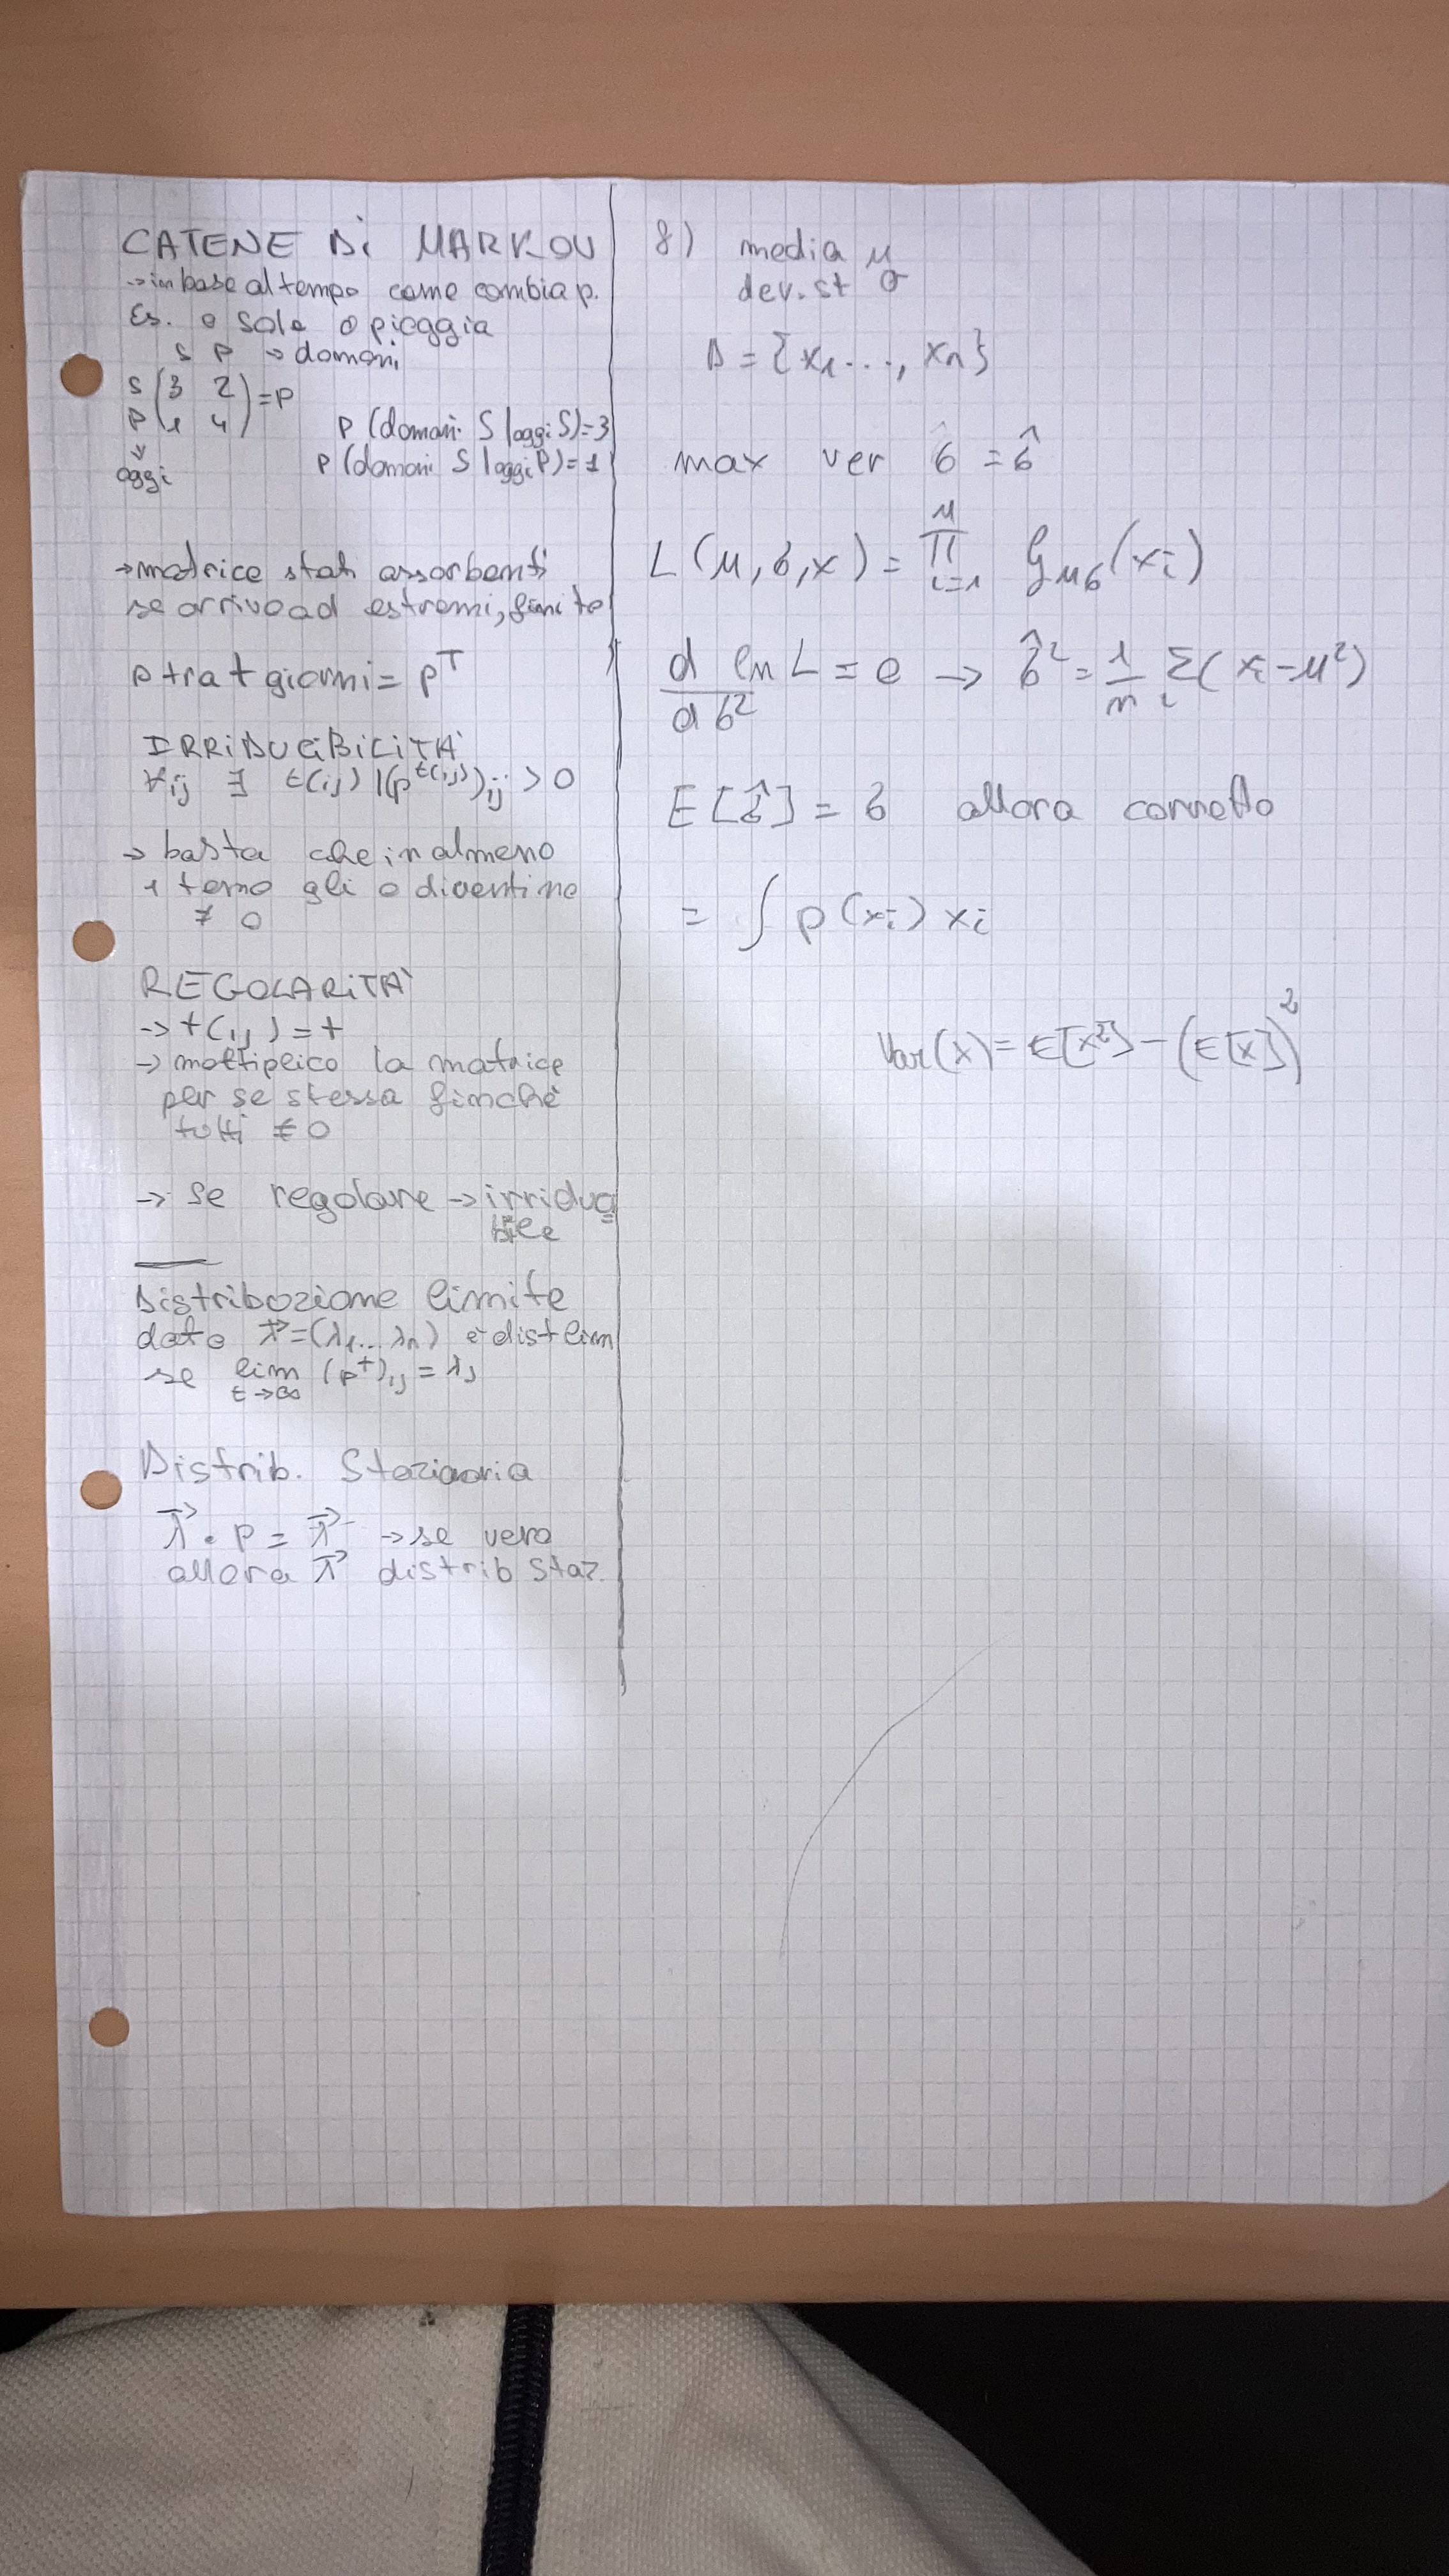 CATENE Di MARKOV
→ in base al tempo come cambia p.
Es. o sole o pioggia
S P → domani
S (3 2) = P
P (1 4)
↓
oggi
P (domani S | oggi S) = 3
P (domani S | oggi P) = 1
→ matrice stati assorbenti
se arrivo ad estremi, finito
p tra t giorni = P^T
IRRiDUCiBiLiTÀ
∀ij ∃ t(ij) | (p^t(i,j))ij > 0
→ basta che in almeno
1 temo gli 0 diventino
≠ 0
REGOLARiTÀ
→ t(ij) = t
→ moltiplico la matrice
per se stessa finchè
tutti ≠ 0
→ se regolare → irriduci
bile
Distribuzione limite
dato π⃗ = (λ1... λn) è dist lim
se lim t→∞ (p^t)ij = λj
Distrib. Stazionaria
π⃗ · P = π⃗ → se vero
allora π⃗ distrib staz.
8) media μ
dev. st σ
D = {x1..., xn}
max ver σ = σ̂
L(μ, σ, x) = ∏ i=1 n gμσ(xi)
d ln L / dσ² = 0 → σ̂² = 1/n Σi (xi - μ²)
E[σ̂] = σ allora corretto
= ∫ p(xi) xi
Var(x) = E[x²] - (E[x])²